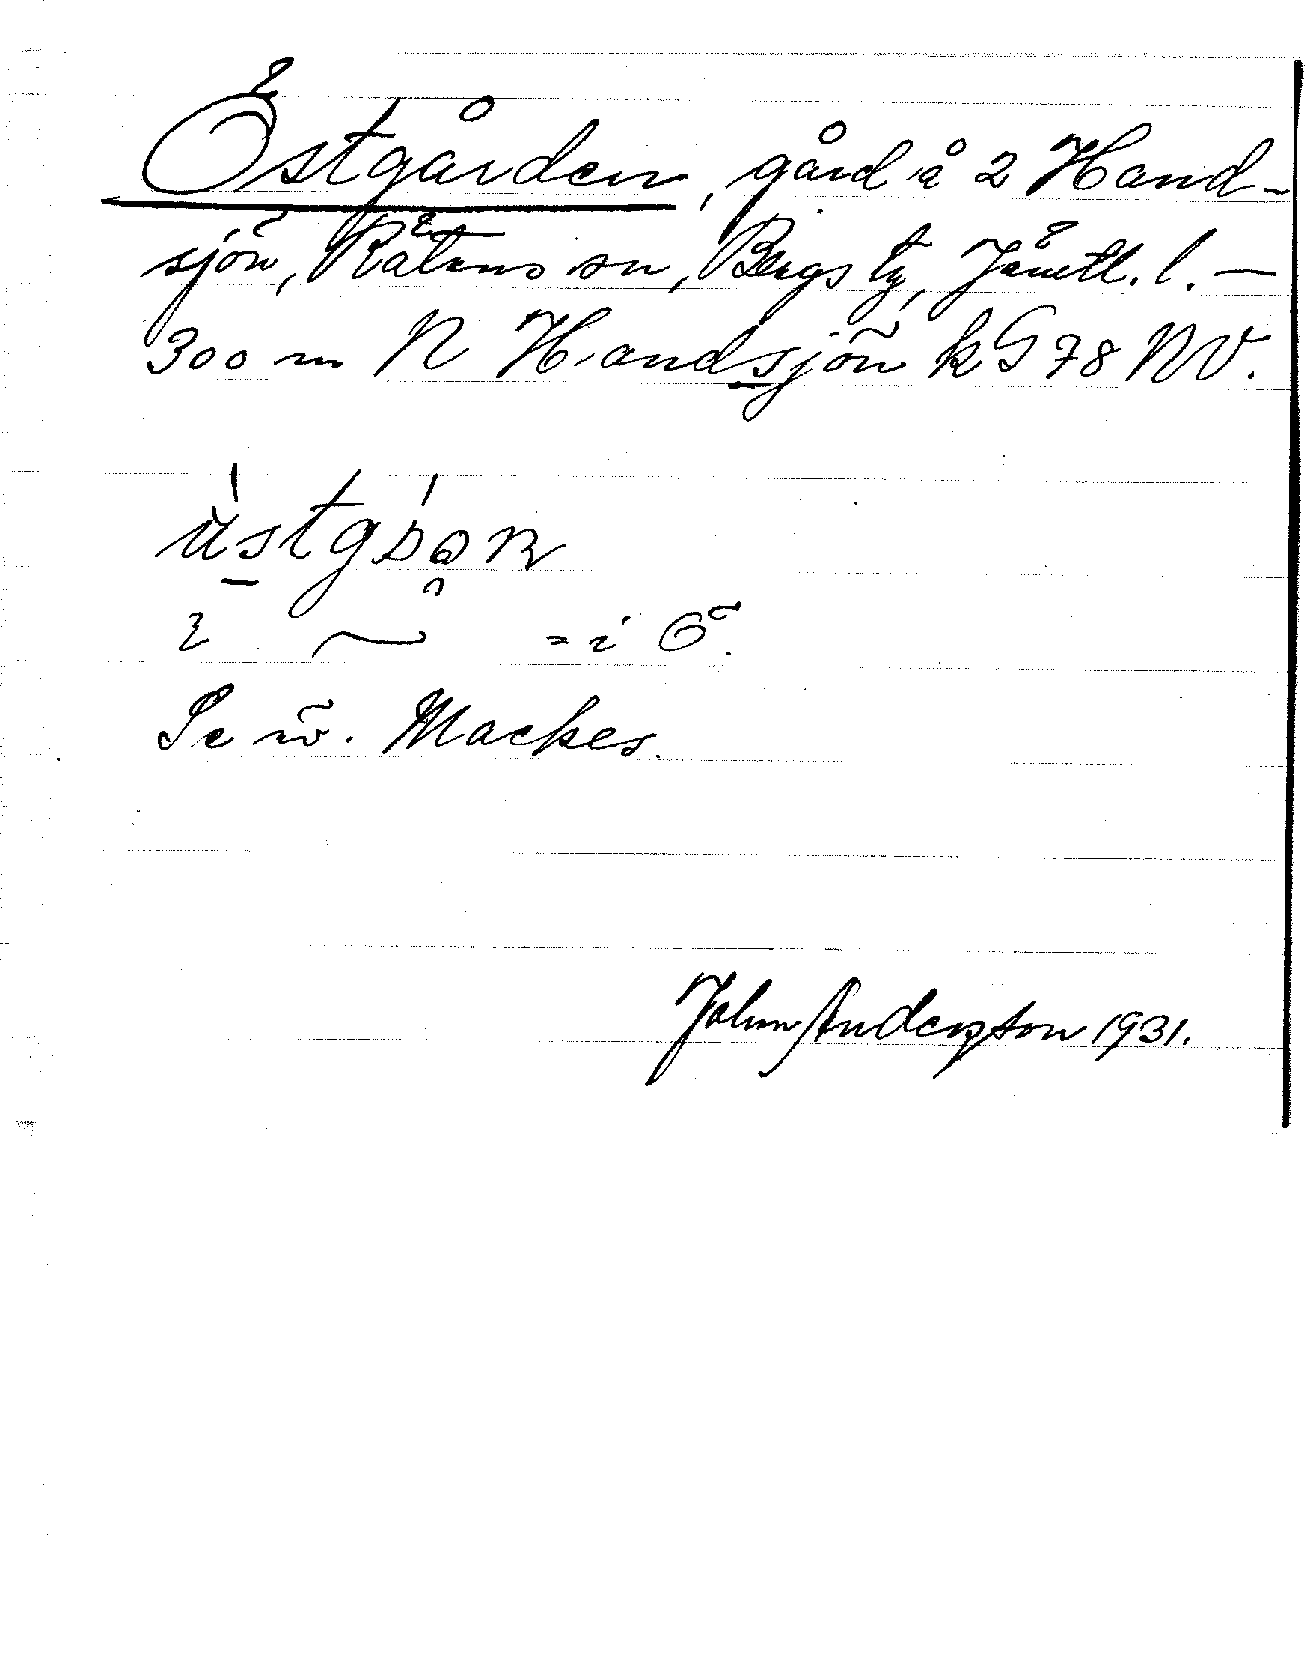 Östgården, gård å 2 Hand-
sjön, Rätans sn, Bergs tg, Jämtl. l. —
300 m N Handsjön k G 78 NV.
= i
Se äv. Mackes.
John Anderzson 1931.